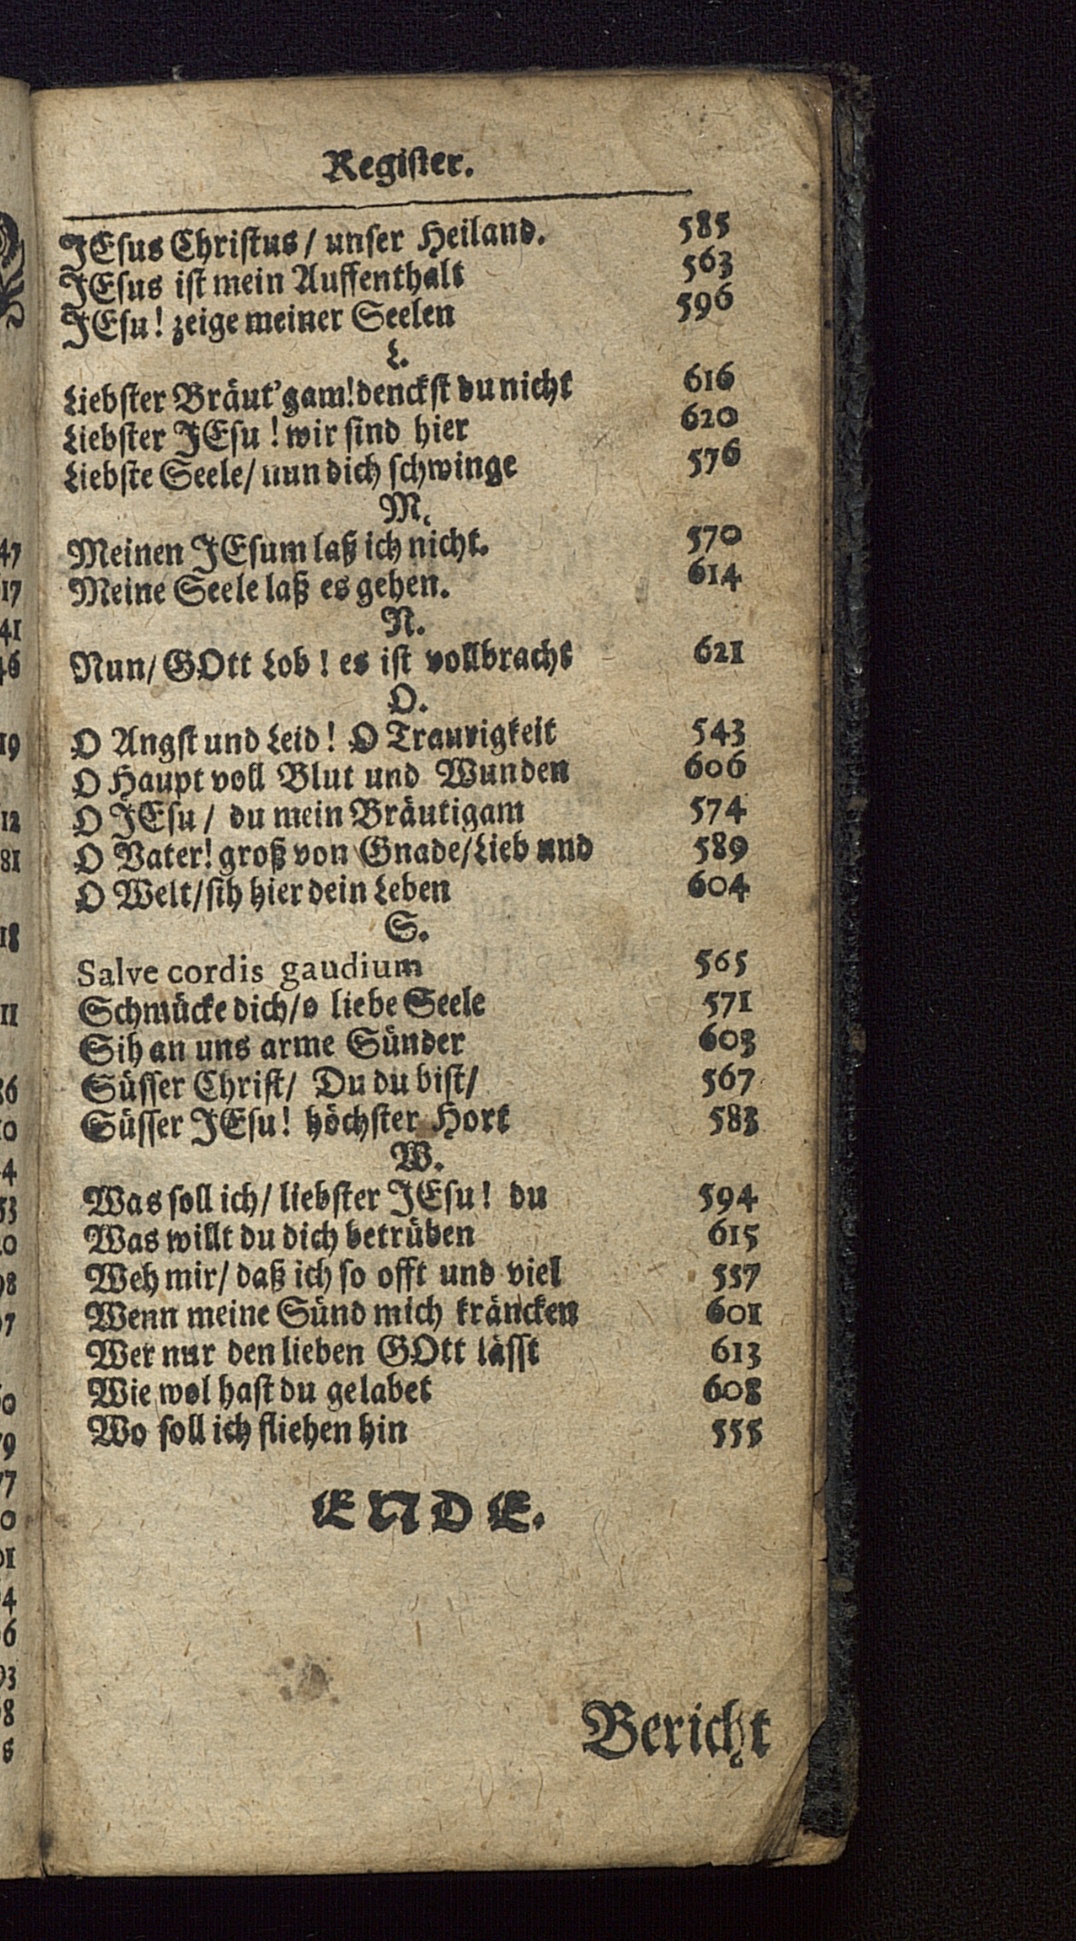 Register.
JEsus Christus / unser Heiland. 585
JEsus ist mein Auffenthalt 563
JEsu! zeige meiner Seelen 596
L.
Liebster Bräut'gam! denckst du nicht 616
Liebster JEsu ! wir sind hier 620
Liebste Seele/ nun dich schwinge 576
M.
Meinen JEsum laß ich nicht. 570
Meine Seele laß es gehen. 614
N.
Nun/ GOtt Lob ! es ist vollbracht 621
O.
O Angst und Leid ! O Traurigkeit 543
O Haupt voll Blut und Wunden 606
O JEsu / du mein Bräutigam 574
O Vater! groß von Gnade/Lieb und 589
O Welt/sih hier dein Leben 604
S.
Salve cordis gaudium 565
Schmücke dich/o liebe Seele 571
Sih an uns arme Sünder 603
Süsser Christ/ Du du bist/ 567
Süsser JEsu! höchster Hort 583
W.
Was soll ich/ liebster JEsu! du 594
Was willt du dich betrüben 615
Weh mir/ daß ich so offt und viel 557
Wenn meine Sünd mich kräncken 601
Wer nur den lieben GOtt lässt 613
Wie wol hast du gelabet 608
Wo soll ich fliehen hin 555
ENDE.
Bericht